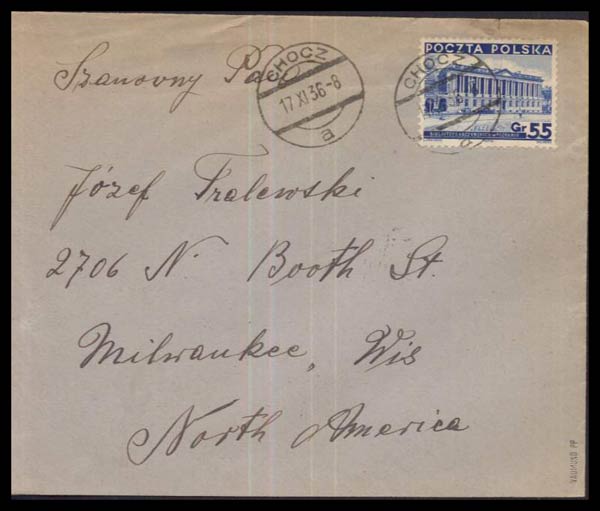 Szanowny Pan
CHOCZ
17 XI 36-8
a
CHOCZ
a
POCZTA POLSKA
Gr 55
Józef Tralewski
2706 N. Booth St.
Milwaukee, Wis
North America